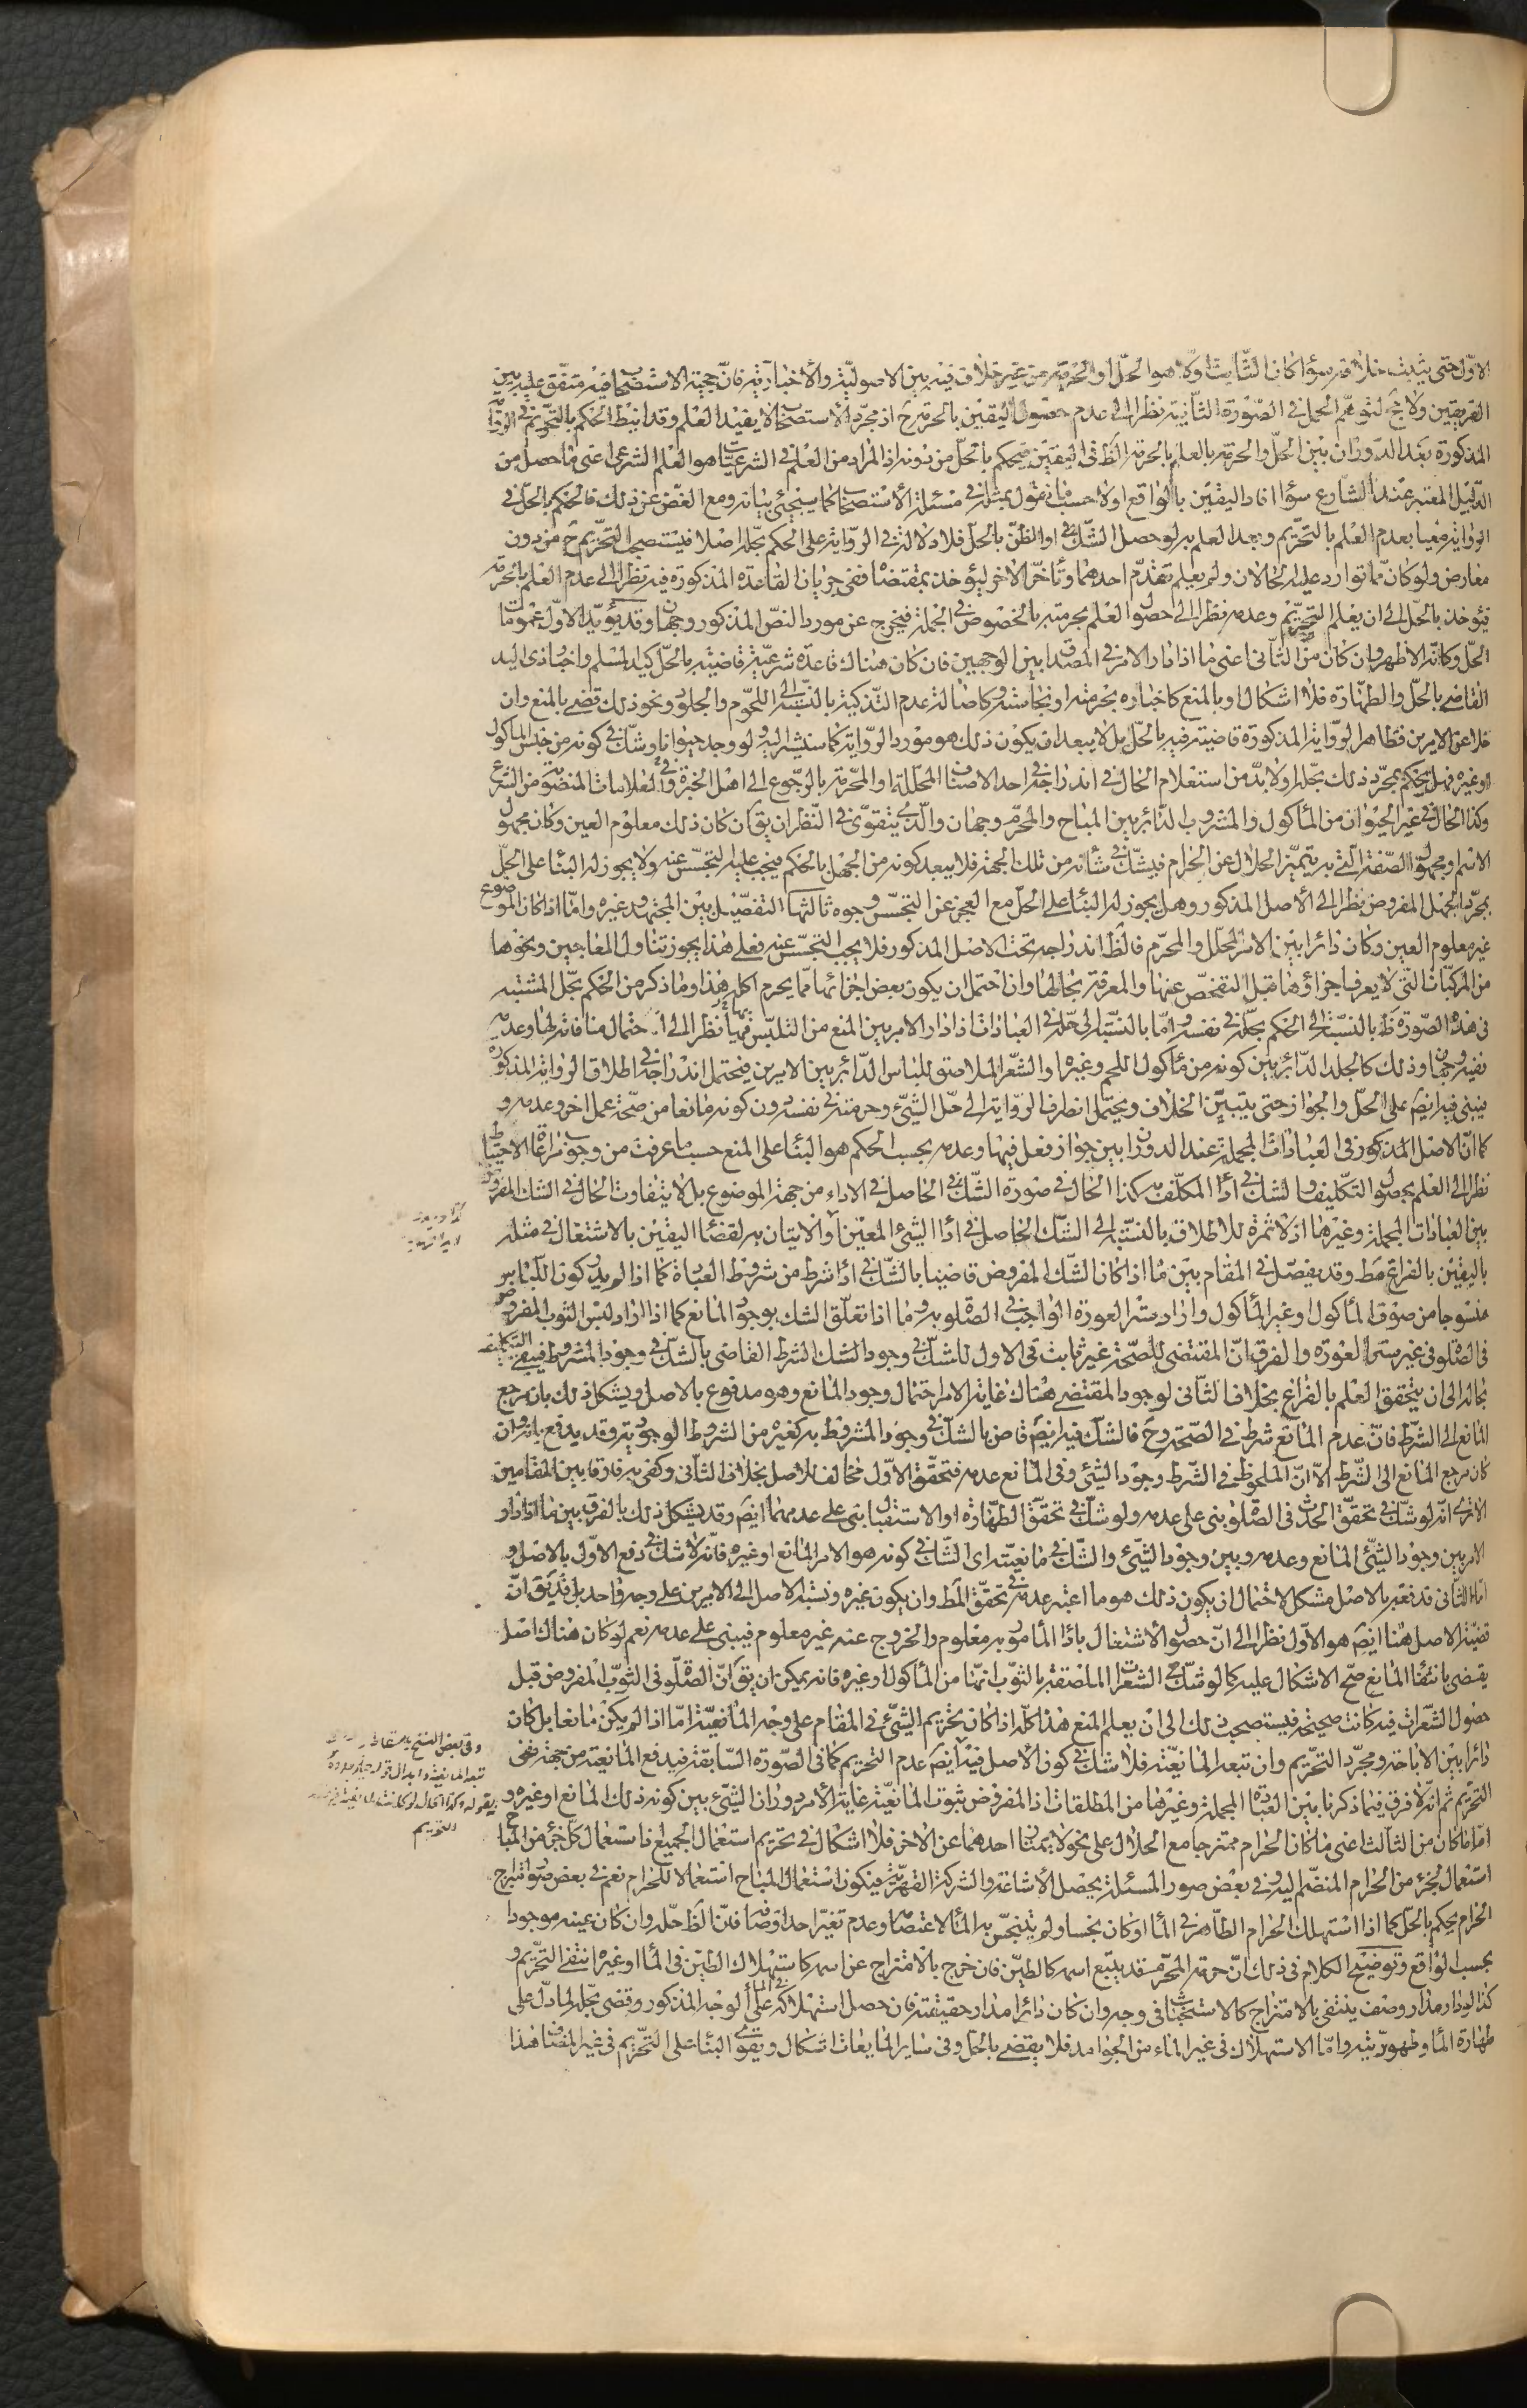 الاوّل حتى يثبت خلافه سواء كان الثابت اولا هو الحلّ او الحرمة من غير خلاف فيه بين الاصولية والاخبارية فانّ حجية الاستصحاب فيه متفق عليه بين
الفريقين ولا يتوهّم الحل في الصّورة الثّانية نظرا الى عدم حصول اليقين بالحرمة ح اذ مجرّد الاستصحاب لا يفيد العلم وقد انيط الحكم بالتحريم في الرواية
المذكورة بعد الدّوران بين الحلّ والحرمة بالعلم بالحرمة الظ في اليقين فيحكم بالحلّ من دونه اذ المراد من العلم في الشرعيّات هو العلم الشرعى اعنى ما حصل من
الدّليل المعتبر عند الشارع سواء افاد اليقين بالواقع اولا حسب ما نقول بمثله في مسئلة الاستصحاب كما سيجئ بيانه ومع الغضّ عن ذلك فالحكم بالحلّ في
الرواية مغيا بعدم العلم بالتحريم وبعد العلم به لو حصل الشّك او الظنّ بالحلّ فلا دلالة في الرّواية على الحكم بحلّه اصلا فيستصحب التحريم ح من دون
معارض ولو كان ممّا توارد عليه الحالان ولم يعلم تقدّم احدهما وتأخّر الاخر ليؤخذ بمقتضاه ففي جريان القاعدة المذكورة فيه نظرا الى عدم العلم بالحرمة
فيؤخذ بالحلّ الى ان يعلم التحريم وعدمه نظرا الى حصول العلم بحرمته بالخصوص في الجملة فيخرج عن مورد النصّ المذكور وجهان وقد يؤيّد الاوّل عمومات
الحلّ وكانّه الاظهر وان كان من الثّانى اعنى ما اذا دار الامر في المصداق بين الوجهين فان كان هناك قاعدة شرعيّة قاضية بالحلّ كيد المسلم واخبار ذى اليد
القاضى بالحلّ والطهارة فلا اشكال او بالمنع كاخباره بحرمته او نجاسته وكاصالة عدم التّذكية بالنّسبة الى اللحوم والجلود ونحو ذلك قضى بالمنع وان
خلا عن الامرين فظاهر الرّواية المذكورة قاضية فيه بالحلّ بل لا يبعد ان يكون ذلك هو مورد الرّواية كما سنشير اليه ولو وجد حيوانا وشكّ في كونه من جنس المأكول
او غيره فهل يحكم بمجرّد ذلك بحلّه او لا بدّ من استعلام الحال في اندراجه في احد الاصناف المحلّلة او المحرّمة بالرّجوع الى اهل الخبرة وفى العلامات المنصوصة من الشرع
وكذا الحال في غير الحيوان من المأكول والمشروب الدّائر بين المباح والمحرّم وجهان والّذى يتقوّى في النّظر ان يق ان كان ذلك معلوم العين وكان مجهول
الاسم او مجهول الصّفة الّتى به يتميّز الحلال عن الحرام فيشكّ في شأنه من تلك الجهة فلا يبعد كونه من الجهل بالحكم فيجب عليه التجسّس عنه ولا يجوز له البناء على الحلّ
بمجرّد الجهل المفروض نظرا الى الاصل المذكور وهل يجوز له البناء على الحلّ مع العجز عن التجسّس وجوه ثالثها التفصيل بين المجتهد وغيره وامّا اذا كان الموضوع
غير معلوم العين وكان دائرا بين الامر المحلّل والمحرّم فالظ اندراجه تحت الاصل المذكور فلا يجب التجسّس عنه فعلى هذا يجوز تناول المعاجين ونحوها
من المركّبات التى لا يعرف اجزاؤها قبل التفحّص عنها والمعرفة بحالها وان احتمل ان يكون بعض اجزائها ممّا يحرم اكله هذا وما ذكر من الحكم بحلّ المشتبه
في هذه الصّورة ظ بالنسبة الى الحكم بحلّه في نفسه وامّا بالنسبة الى حلّه في العبادات اذا دار الامر بين المنع من التلبّس به فيها نظرا الى احتمال منافاته لها وعدمه
ففيه وجهان وذلك كالجلد الدّائر بين كونه من مأكول اللحم وغيره او الشّعر الملاصق للباس الدّائر بين الامرين فيحتمل اندراجه في اطلاق الرواية المذكورة
فيبنى فيه ايضا على الحلّ والجواز حتى يتبيّن الخلاف ويحتمل انصراف الرّواية الى حلّ الشّئ وحرمته في نفسه دون كونه مانعا من صحّة عمل اخر وعدمه و
كما انّ الاصل المذكور في العبادات المجملة عند الدوران بين جواز فعل فيها وعدمه بحسب الحكم هو البناء على المنع حسب ما عرفت من وجوب مراعاة الاحتياط
نظرا الى العلم بحصول التكليف والشك في اداء المكلّف به كذا الحال في صورة الشّك الحاصل في الاداء من جهة الموضوع بل لا يتفاوت الحال في الشك المفروض
بين العبادات المجملة وغيرها اذ لا ثمرة للاطلاق بالنسبة الى الشّك الحاصل في اداء الشئ المعيّن او الاتيان به لقضاء اليقين بالاشتغال في مثله
باليقين بالفراغ مط وقد يفصّل في المقام بين ما اذا كان الشّك المفروض قاضيا بالشّك في اداء شرط من شروط العبادة كما اذا لم يدر كون اللباس
منسوجا من صوف المأكول او غير المأكول واراد ستر العورة الواجب في الصّلوة به وما اذا تعلّق الشك بوجود المانع كما اذا اراد لبس الثوب المفروض
في الصّلوة في غير ستر العورة والفرق انّ المقتضى للصّحة غير ثابت في الاول للشّك في وجود الشرط القاضى بالشّك في وجود المشروط فيبقى التكليف
بحاله الى ان يتحقق العلم بالفراغ بخلاف الثّانى لوجود المقتضى هناك غاية الامر احتمال وجود المانع وهو مدفوع بالاصل ويشكل ذلك بان مرجع
المانع الى الشّرط فانّ عدم المانع شرط في الصّحة وح فالشّك فيه ايضا قاض بالشّك في وجود المشروط به كغيره من الشروط الوجودية وقد يدفع بانه وان
كان مرجع المانع الى الشّرط الّا انّ الملحوظ في الشّرط وجود الشّئ وفى المانع عدمه فتحقّق الاوّل مخالف للاصل بخلاف الثّانى وكفى به فارقا بين المقامين
الا ترى انّه لو شكّ في تحقّق الحدث في الصّلوة بنى على عدمه ولو شكّ في تحقق الطّهارة او الاستقبال بنى على عدمهما ايضا وقد يشكل ذلك بالفرق بين ما اذا دار
الامر بين وجود الشّئ المانع وعدمه وبين وجود الشّئ والشّك في مانعيّته اى الشّك في كونه هو الامر المانع او غيره فانّه لا شك في دفع الاول بالاصل و
امّا الثّانى فدفعه بالاصل مشكل لاحتمال ان يكون ذلك هو ما اعتبر عدمه في تحقّق المط وان يكون غيره ونسبة الاصل الى الامرين على وجه واحد بل قد يق انّ
قضيّة الاصل هنا ايضا هو الاوّل نظرا الى انّ حصول الاشتغال باداء المأمور به معلوم والخروج عنه غير معلوم فيبنى على عدمه نعم لو كان هناك اصل
يقضى بانتفاء المانع صحّ الاشكال عليه كما لو شكّ في الشّعرات الملصقة بالثّوب انها من المأكول او غيره فانه يمكن ان يق انّ الصّلوة في الثّوب المفروض قبل
حصول الشّعرات فيه كانت صحيحة فيستصحب ذلك الى ان يعلم المنع هذا كلّه اذا كان تحريم الشّئ في المقام على وجه المانعيّة امّا اذا لم يكن مانعا بل كان
دائرا بين الاباحة ومجرّد التحريم وان تبعه المانعيّة فلا شك في كون الاصل فيه ايضا عدم التحريم كما في الصّورة السّابقة فيدفع المانعية من جهة نفى
التحريم ثم انّه لا فرق فيما ذكرنا بين العبادة المجملة وغيرها من المطلقات اذ المفروض ثبوت المانعيّة غاية الامر دوران الشّئ بين كونه ذلك المانع او غيره و
امّا ما كان من الثالث اعنى ما كان الحرام ممتزجا مع الحلال على نحو لا يمتاز احدهما عن الاخر فلا اشكال في تحريم استعمال الجميع فاستعمال كلّ جزء من المباح
استعمال لجزء من الحرام المنضمّ اليه وفى بعض صور المسئلة يحصل الاشاعة والشركة القهريّة فيكون استعمال المباح استعمالا للحرام نعم في بعض صور امتزاج
الحرام يحكم بالحلّ كما اذا استهلك الحرام الطّاهر في الماء او كان نجسا ولم يتنجّس به الماء لاعتصامه وعدم تغيّر احد اوصافه فانّ الظ حلّه وان كان عينه موجودا
بحسب الواقع وتوضيح الكلام في ذلك انّ حرمة المحرّم قد يتبع اسمه كالطين فان خرج بالامتزاج عن اسمه كاستهلاك الطين في الماء او غيره انتفى التّحريم و
كذا لو دار مدار وصف ينتفى بالامتزاج كالاستخباث في وجه وان كان دائرا مدار حقيقته فان حصل استهلاكه في الماء على الوجه المذكور وقضى بحلّه لما دلّ على
طهارة الماء وطهوريّته وامّا الاستهلاك في غير الماء من الجوامد فلا يقضى بالحلّ وفى ساير المايعات اشكال ويقوى البناء على التّحريم في غير المضاف هذا
وفى بعض النسخ
تبعه المانعية وابدال قوله
بقوله وكذا الحال لو كانت المانعية
التحريم